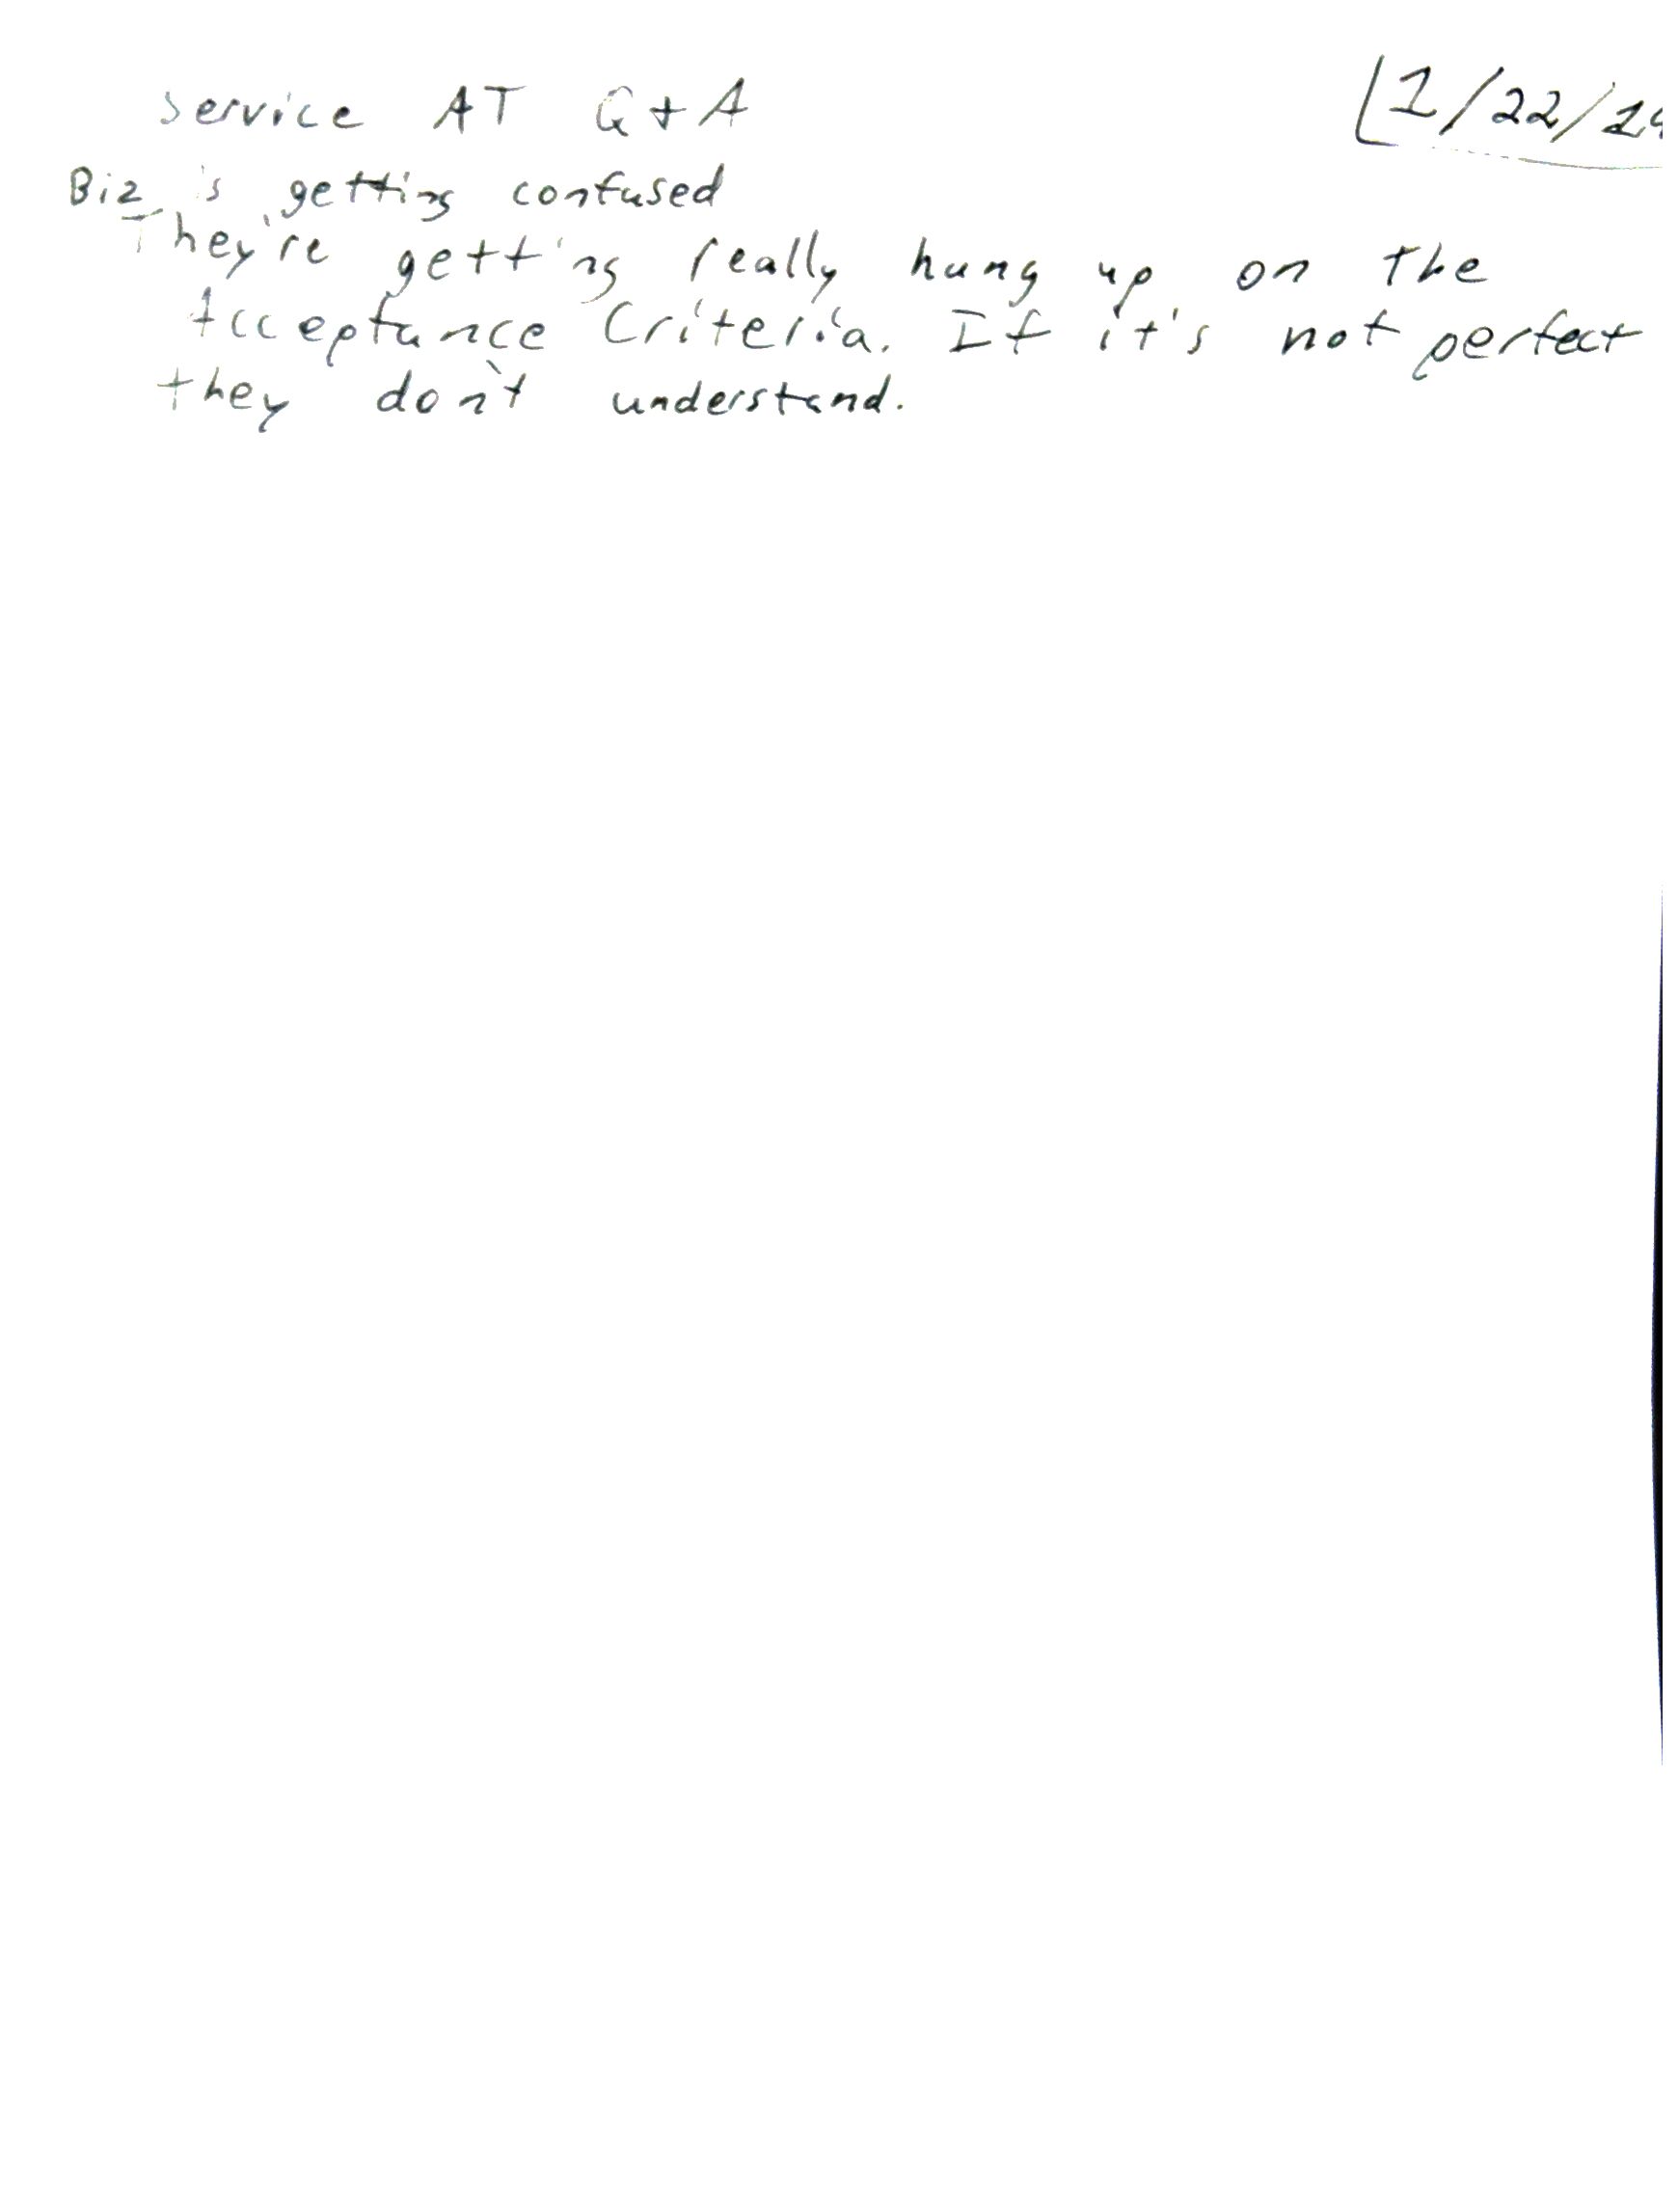 Service AT Q+A
1/22/
Biz is getting confused
They're getting really hung up on the
Acceptance Criteria. If it's not perfect
they don't understand.